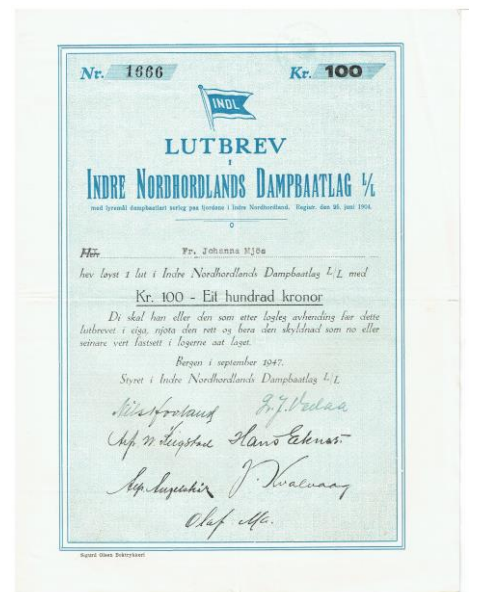 Nr. 1666 Kr. 100
INDL
LUTBREV
I
INDRE NORDHORDLANDS DAMPBAATLAG L/L
med fyremål dampbaatfart serleg paa fjordane i Indre Nordhordland. Registr. den 26. juni 1914.
Hr. Fr. Johanna Mjös
hev løyst 1 lut i Indre Nordhordlands Dampbaatlag L/L med
Kr. 100 - Eit hundrad kronor
Di skal han eller den som etter logleg avhending fær dette
lutbrevet i eiga, njota den rett og bera den skyldnad som no eller
seinare vert fastsett i logerne aat laget.
Bergen i september 1947.
Styret i Indre Nordhordlands Dampbaatlag L/L
Nils
Hans
J. Kvalvaag
Olaf
Sigurd Olsen Boktrykkeri